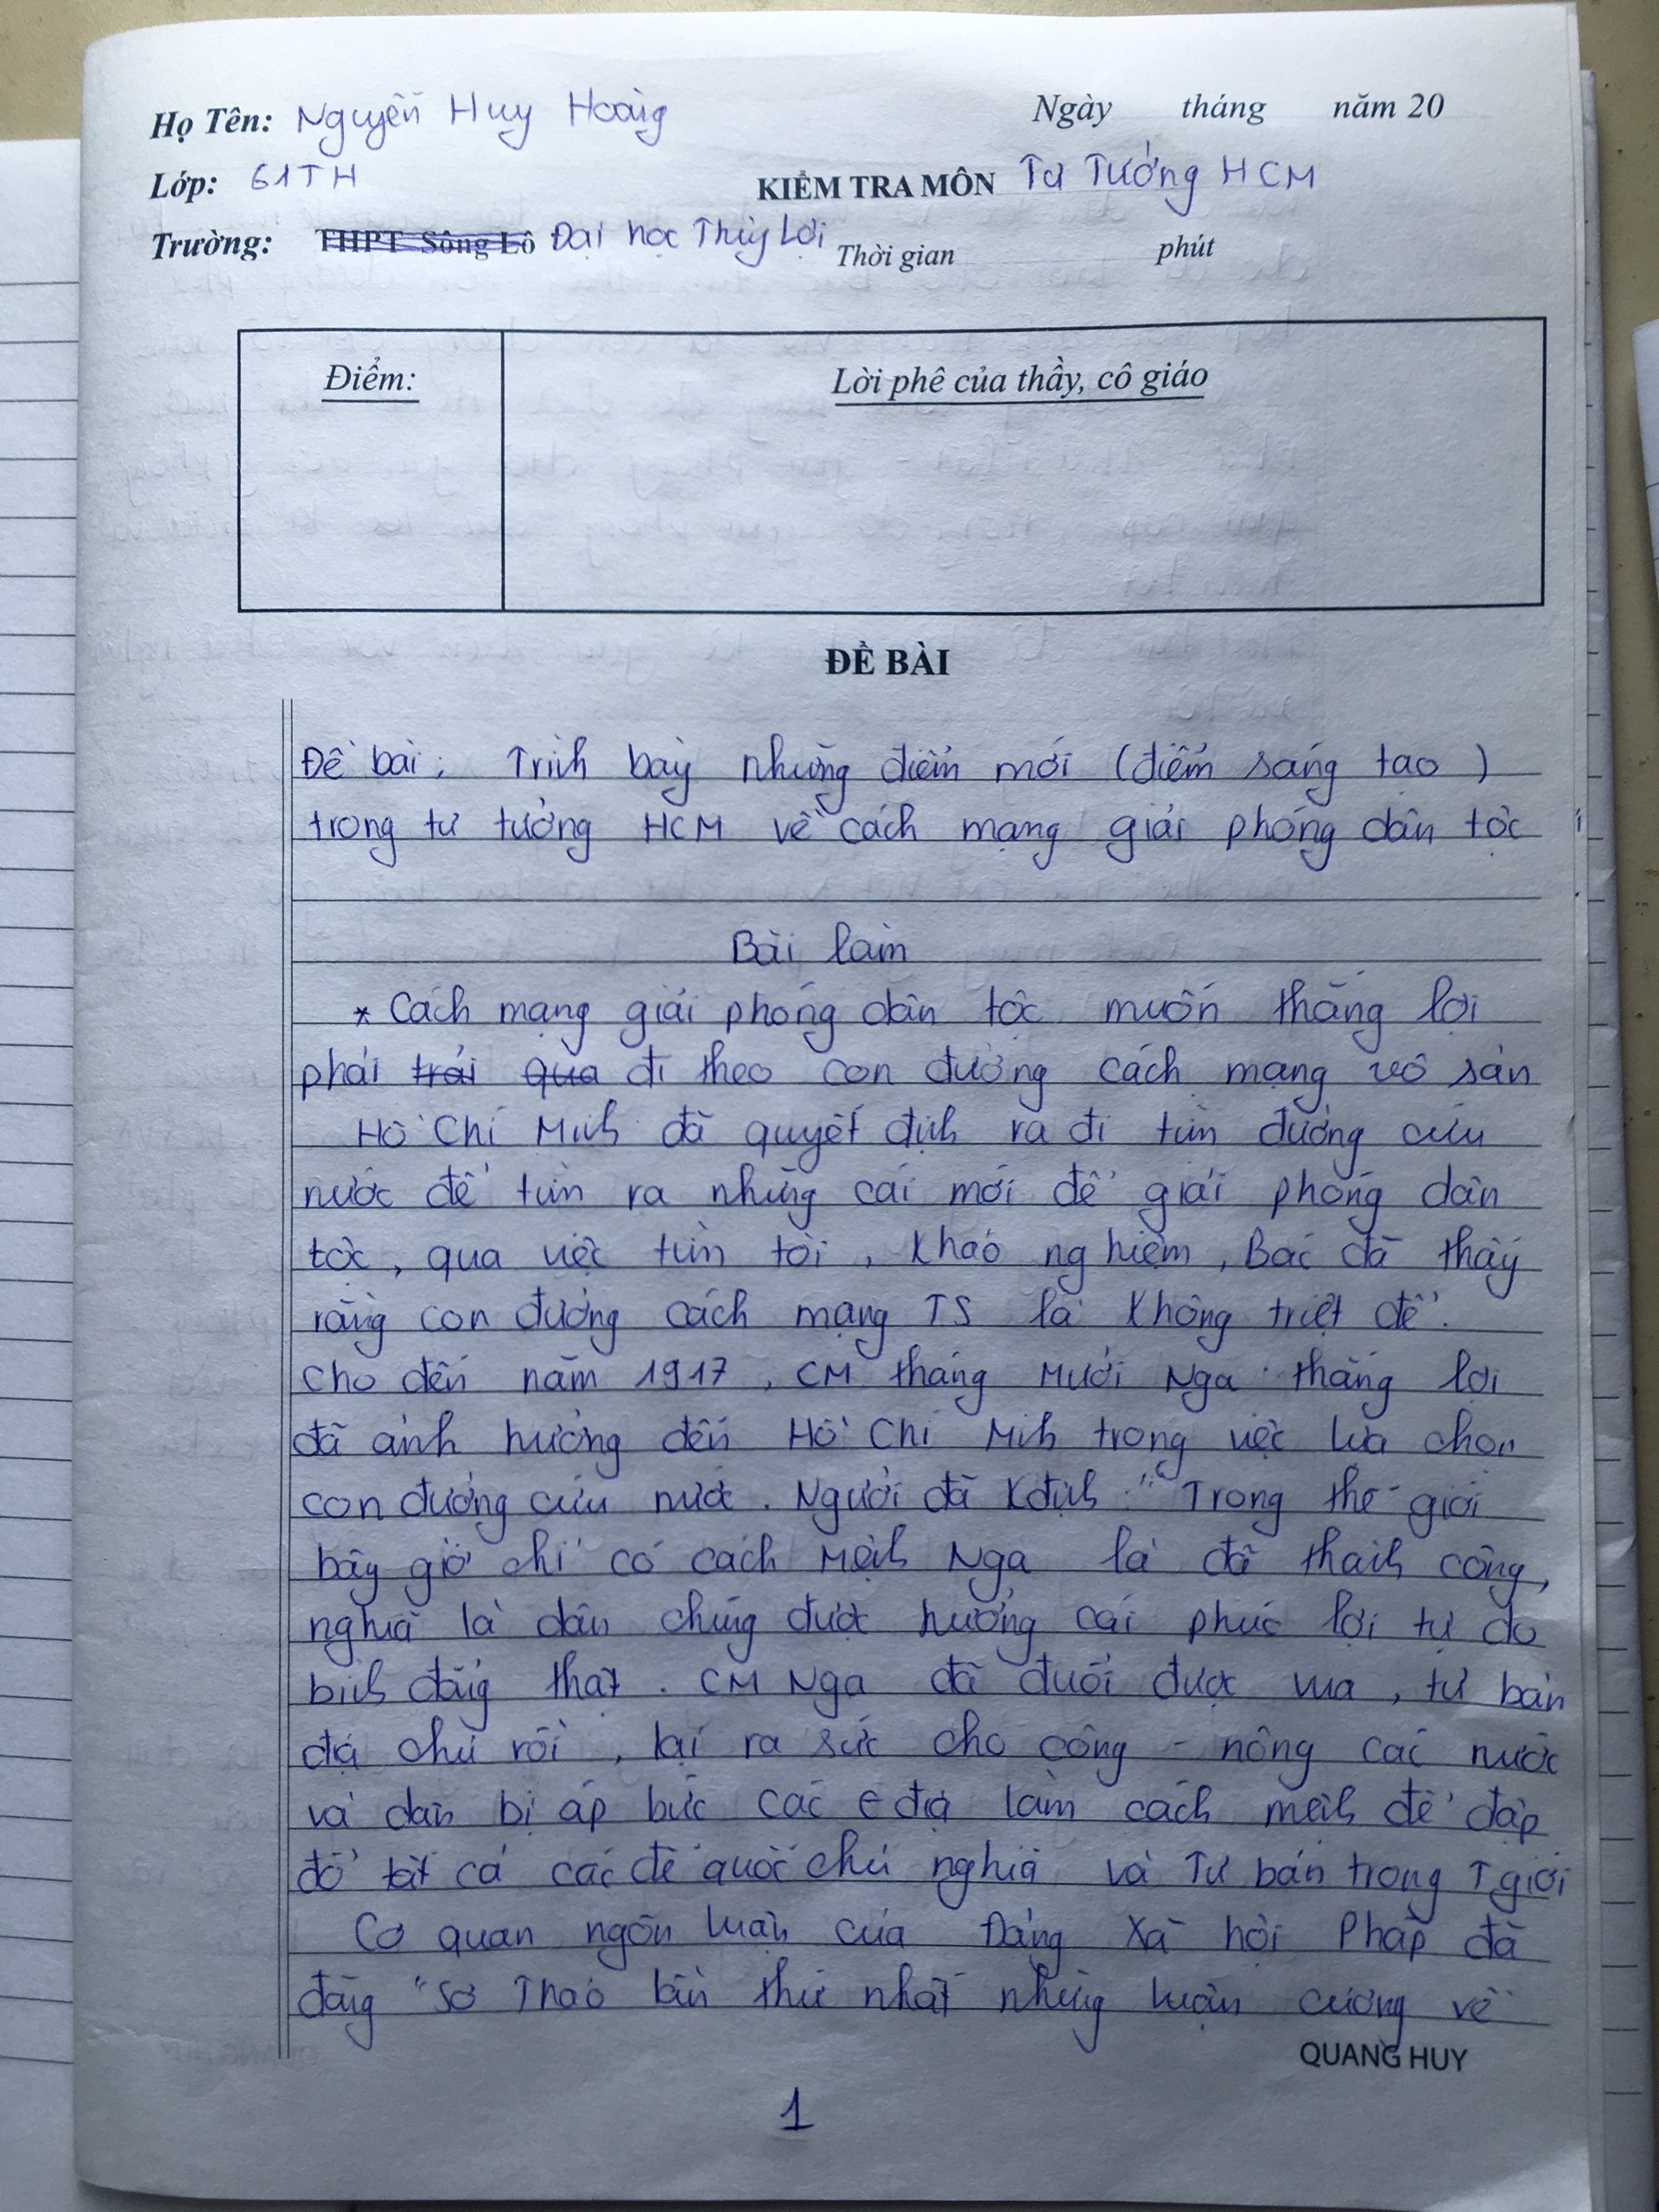 Họ Tên: Nguyễn Huy Hoàng
Ngày tháng năm 20
Lớp: 61TH
KIỂM TRA MÔN Tư Tưởng HCM
Trường: THPT Sông Lô Đại học Thủy Lợi
Thời gian phút
Điểm:
Lời phê của thầy, cô giáo
ĐỀ BÀI
Đề bài: Trình bày những điểm mới (điểm sáng tạo)
trong tư tưởng HCM về cách mạng giải phóng dân tộc
Bài làm
* Cách mạng giải phóng dân tộc muốn thắng lợi
phải trải qua đi theo con đường cách mạng vô sản
Hồ Chí Minh đã quyết định ra đi tìm đường cứu
nước để tìm ra những cái mới để giải phóng dân
tộc, qua việc tìm tòi, khảo nghiệm, Bác đã thấy
rằng con đường cách mạng TS là không triệt để.
Cho đến năm 1917, CM tháng Mười Nga thắng lợi
đã ảnh hưởng đến Hồ Chí Minh trong việc lựa chọn
con đường cứu nước. Người đã kđịnh: "Trong thế giới
bây giờ chỉ có cách Mệnh Nga là đã thành công,
nghĩa là dân chúng được hưởng cái phúc lợi tự do
bình đẳng thật. CM Nga đã đuổi được vua, tư bản
địa chủ rồi, lại ra sức cho công - nông các nước
và dân bị áp bức các t địa làm cách mệnh để đập
đổ tất cả các đế quốc chủ nghĩa và Tư bản trong T giới
Cơ quan ngôn luận của Đảng Xã hội Pháp đã
đăng "Sơ Thảo lần thứ nhất những luận cương về
QUANG HUY
1